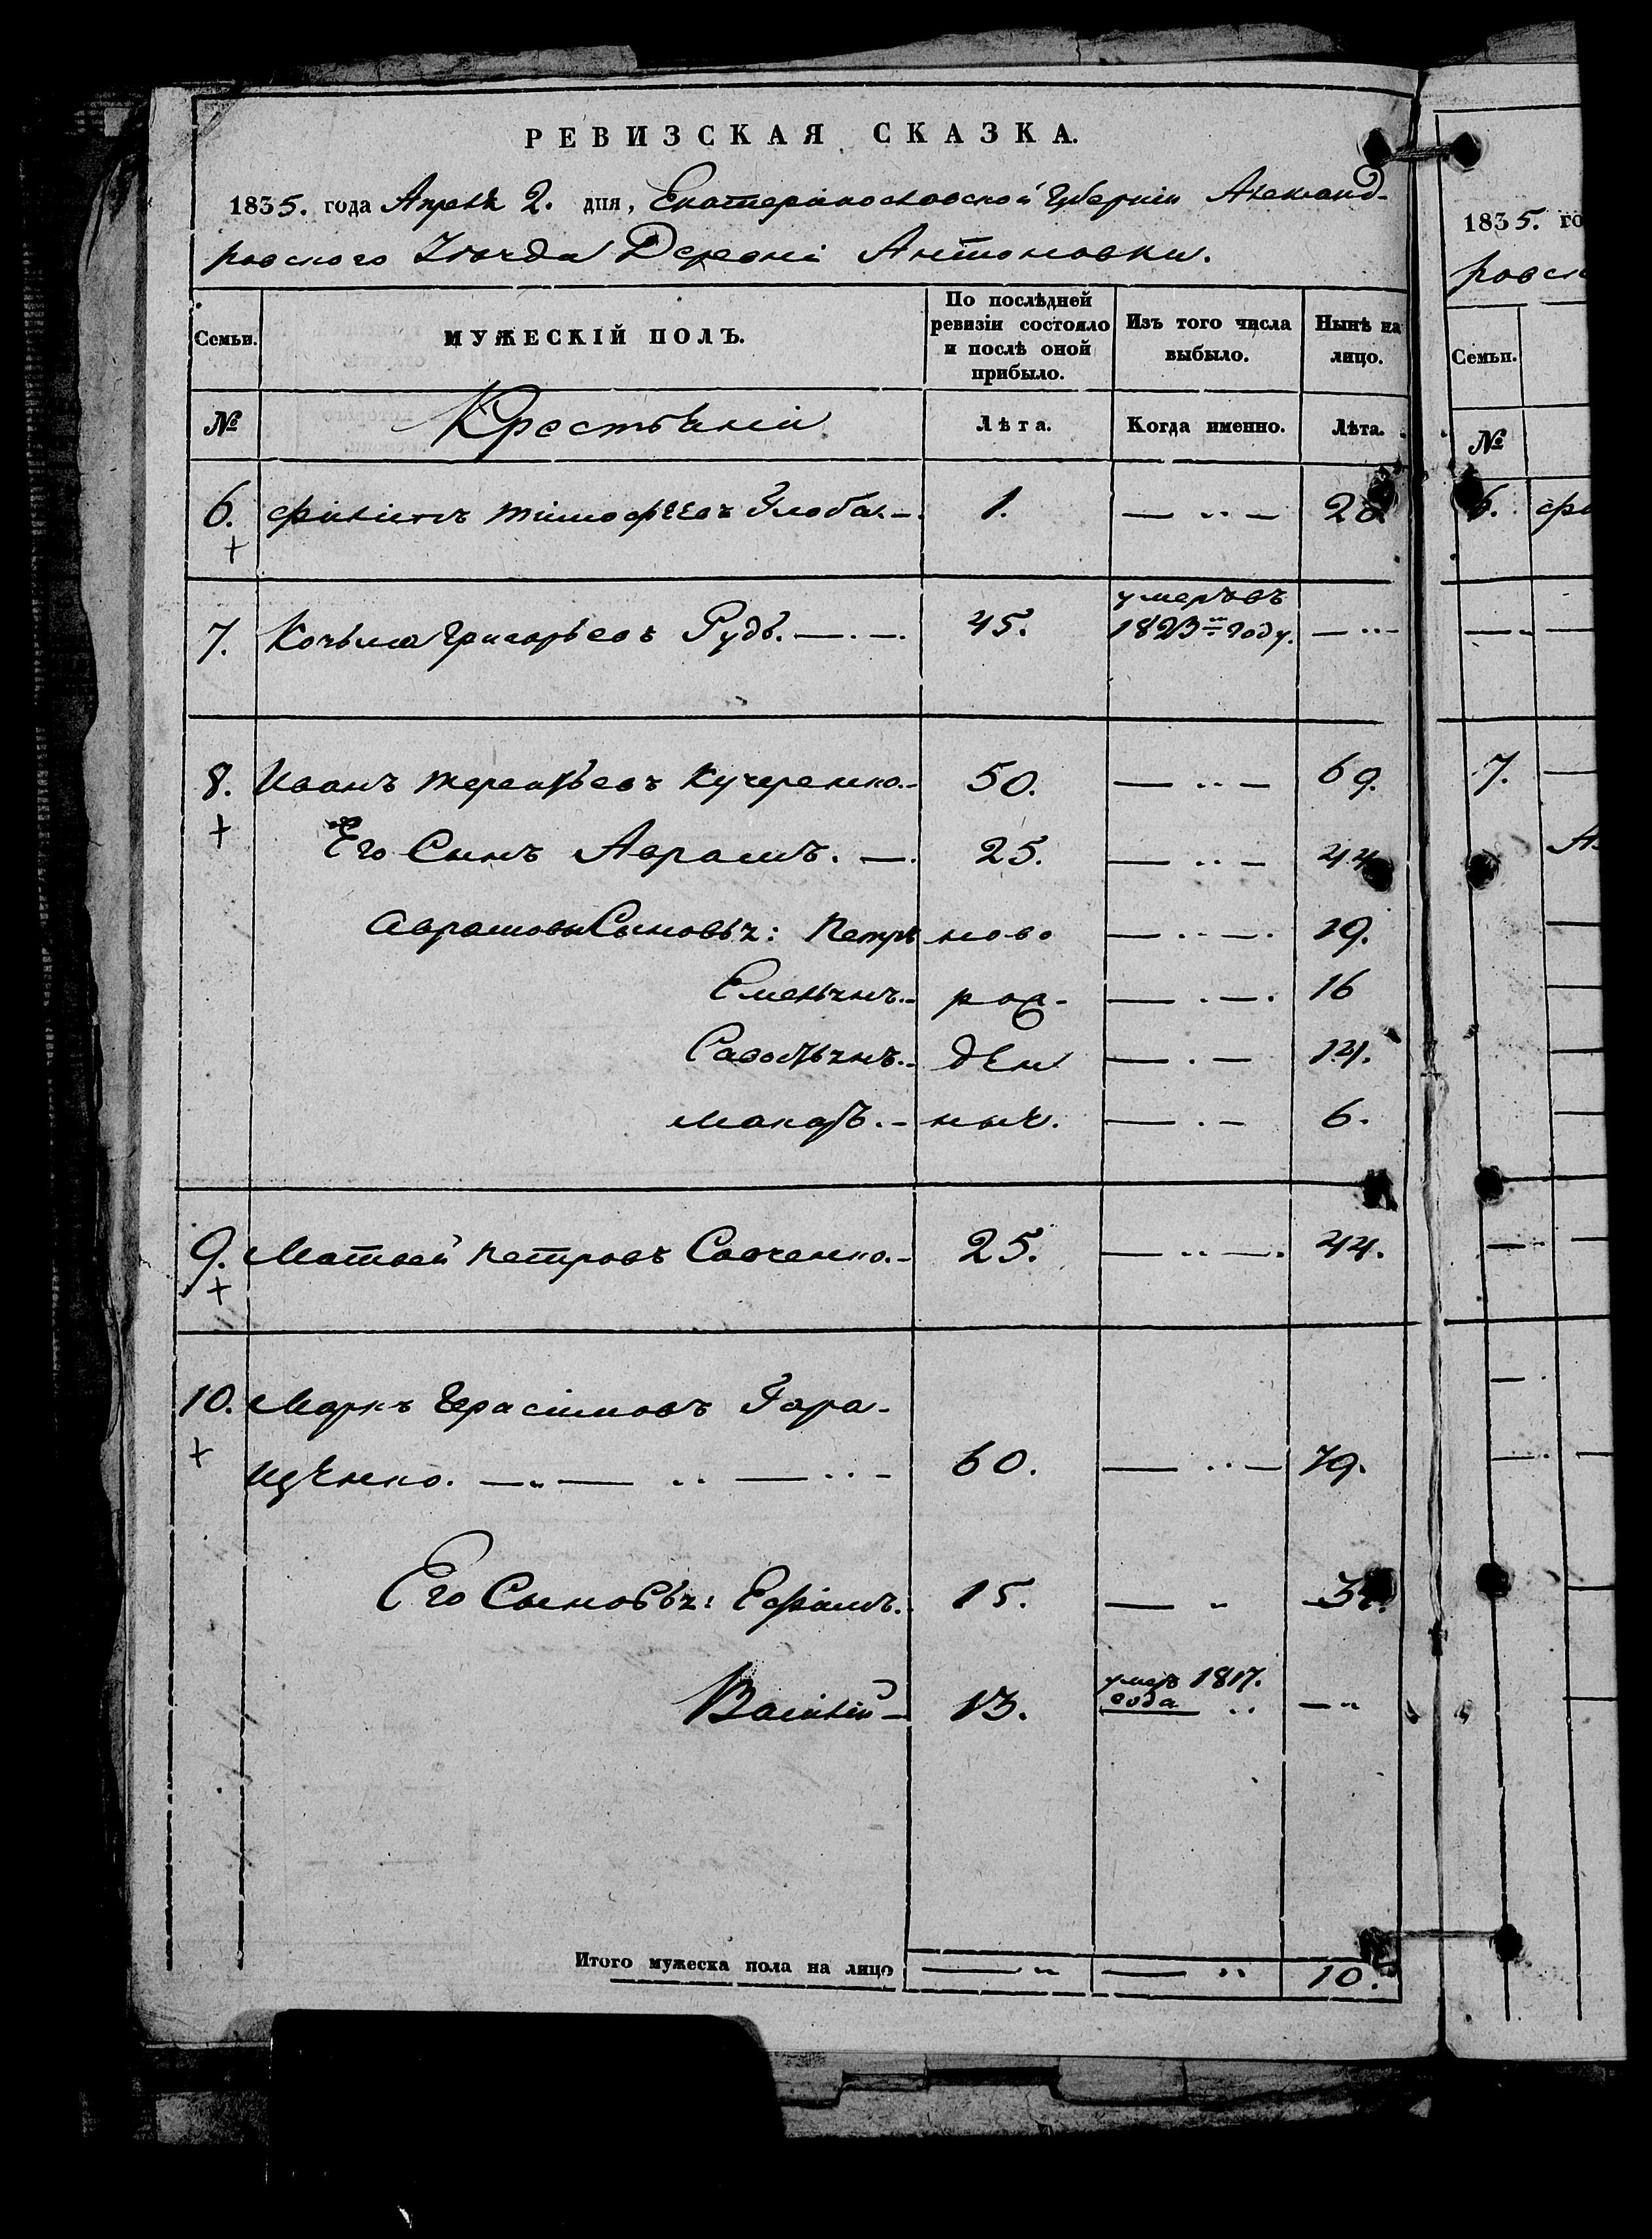 РЕВИЗСКАЯ СКАЗКА.
1835. года Апреля 2. дня, Екатериносла­вской Губернии Александ-
ровского Уезда Деревни Антоновки.
Семьи. МУЖЕСКІЙ ПОЛЪ. По послѣдней ревизіи состояло и послѣ оной прибыло. Изъ того числа выбыло. Нынѣ на лицо.
№ Крестьяніи Лѣта. Когда именно. Лѣта.
6. Филиппъ Тимофѣевъ Глоба.— 1. — .. — 20
7. Козьма Григорьевъ Рудь. —.—. 45. умеръ въ 1823 году. — .. —
8. Иванъ Терентьевъ Кучеренко.- 50. — .. — 69.
Его Сынъ Аврамъ. —. 25. — .. — 44
Аврамовы Сыновья: Петръ ново — .. —. 19.
Емельянъ.- рож- — . —. 16
Савостьянъ.- ден — . — 14.
Макаръ.- ныя. — . — 6.
9. Матвей Петровъ Савченко.- 25. — .. —. 44.
10. Маркъ Герасимовъ Гара-
щенко. — .. — .. — ... - 60. — .. — 79.
Его Сыновья: Ефимъ. 15. — .. 34.
Василий — 13. умеръ 1817. года .. — ..
Итого мужеска пола на лицо — .. — .. 10.
1835. го
ровск
Семьи.
№
6. Фи
7.
А